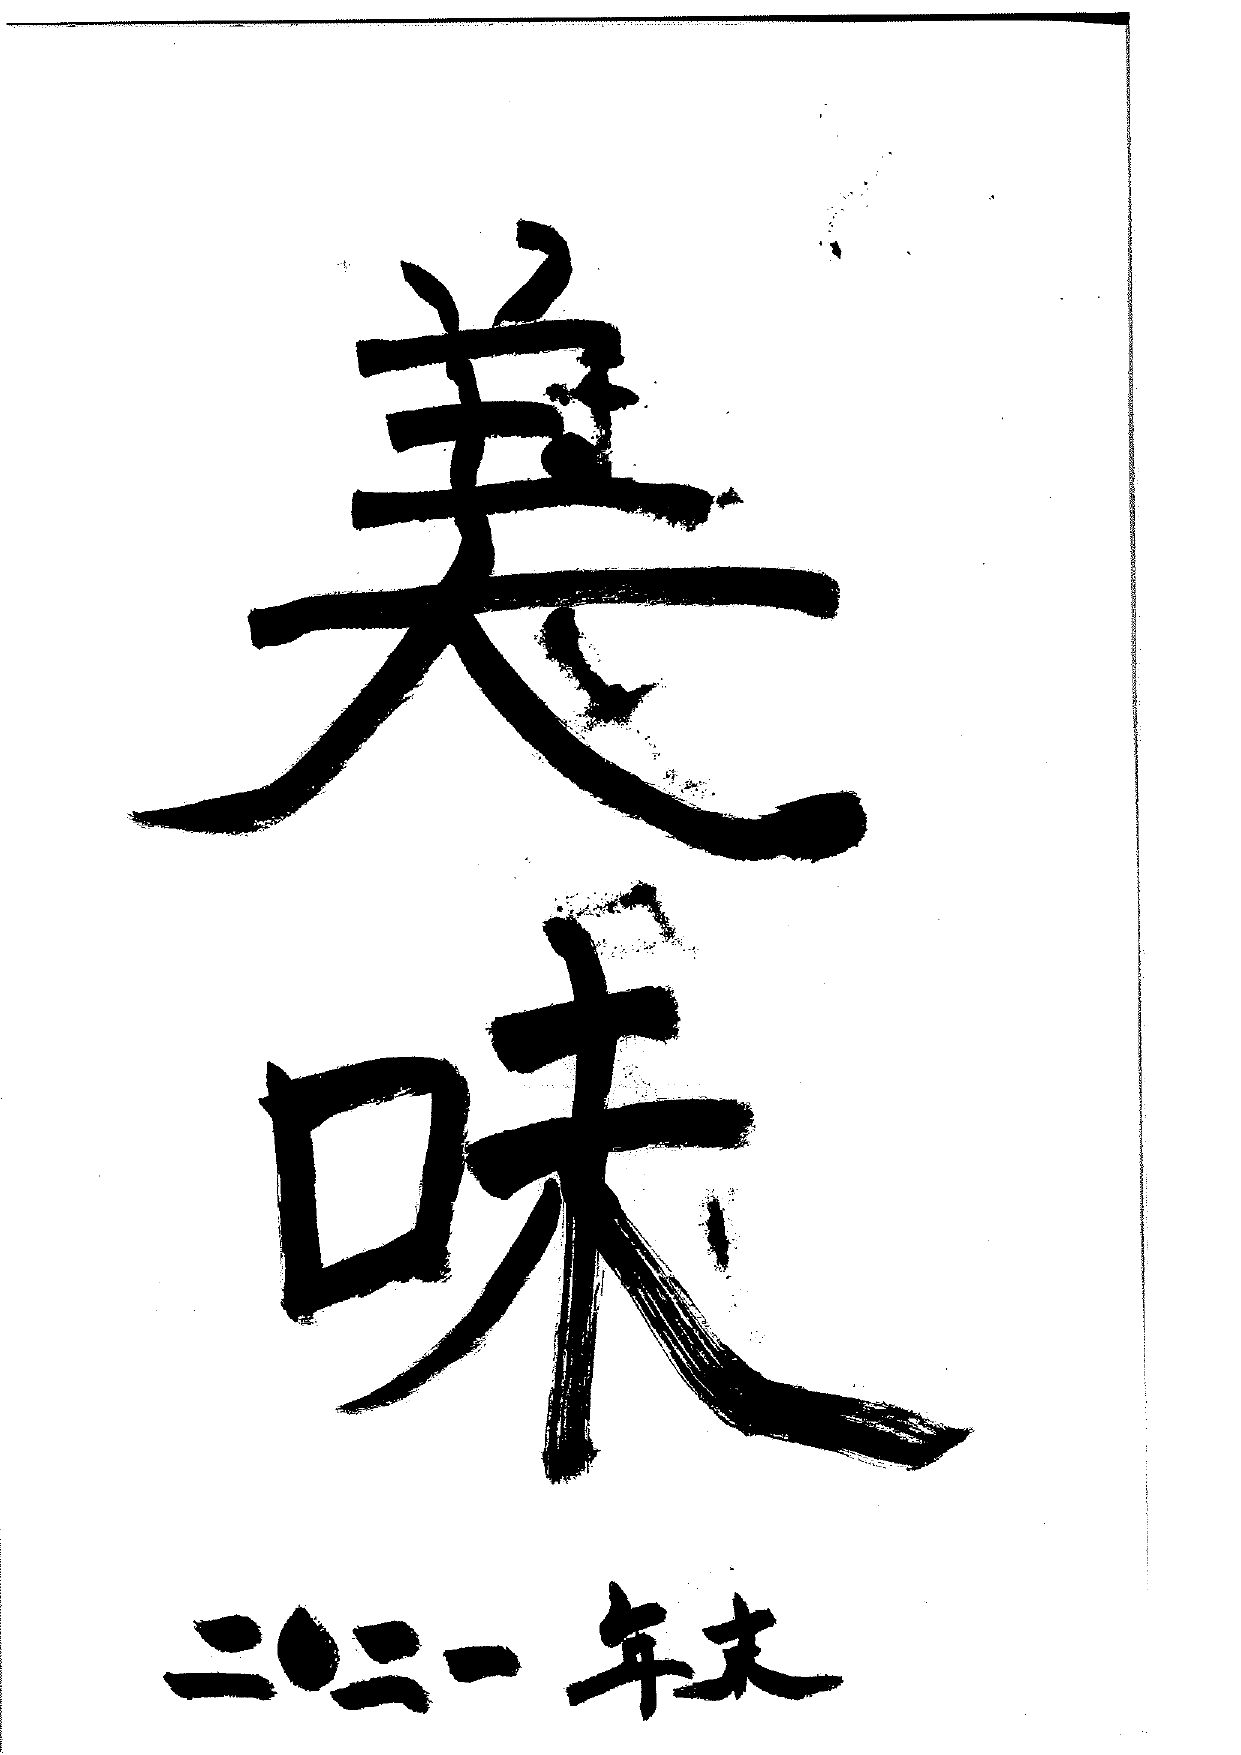 美
味
二〇二一年末